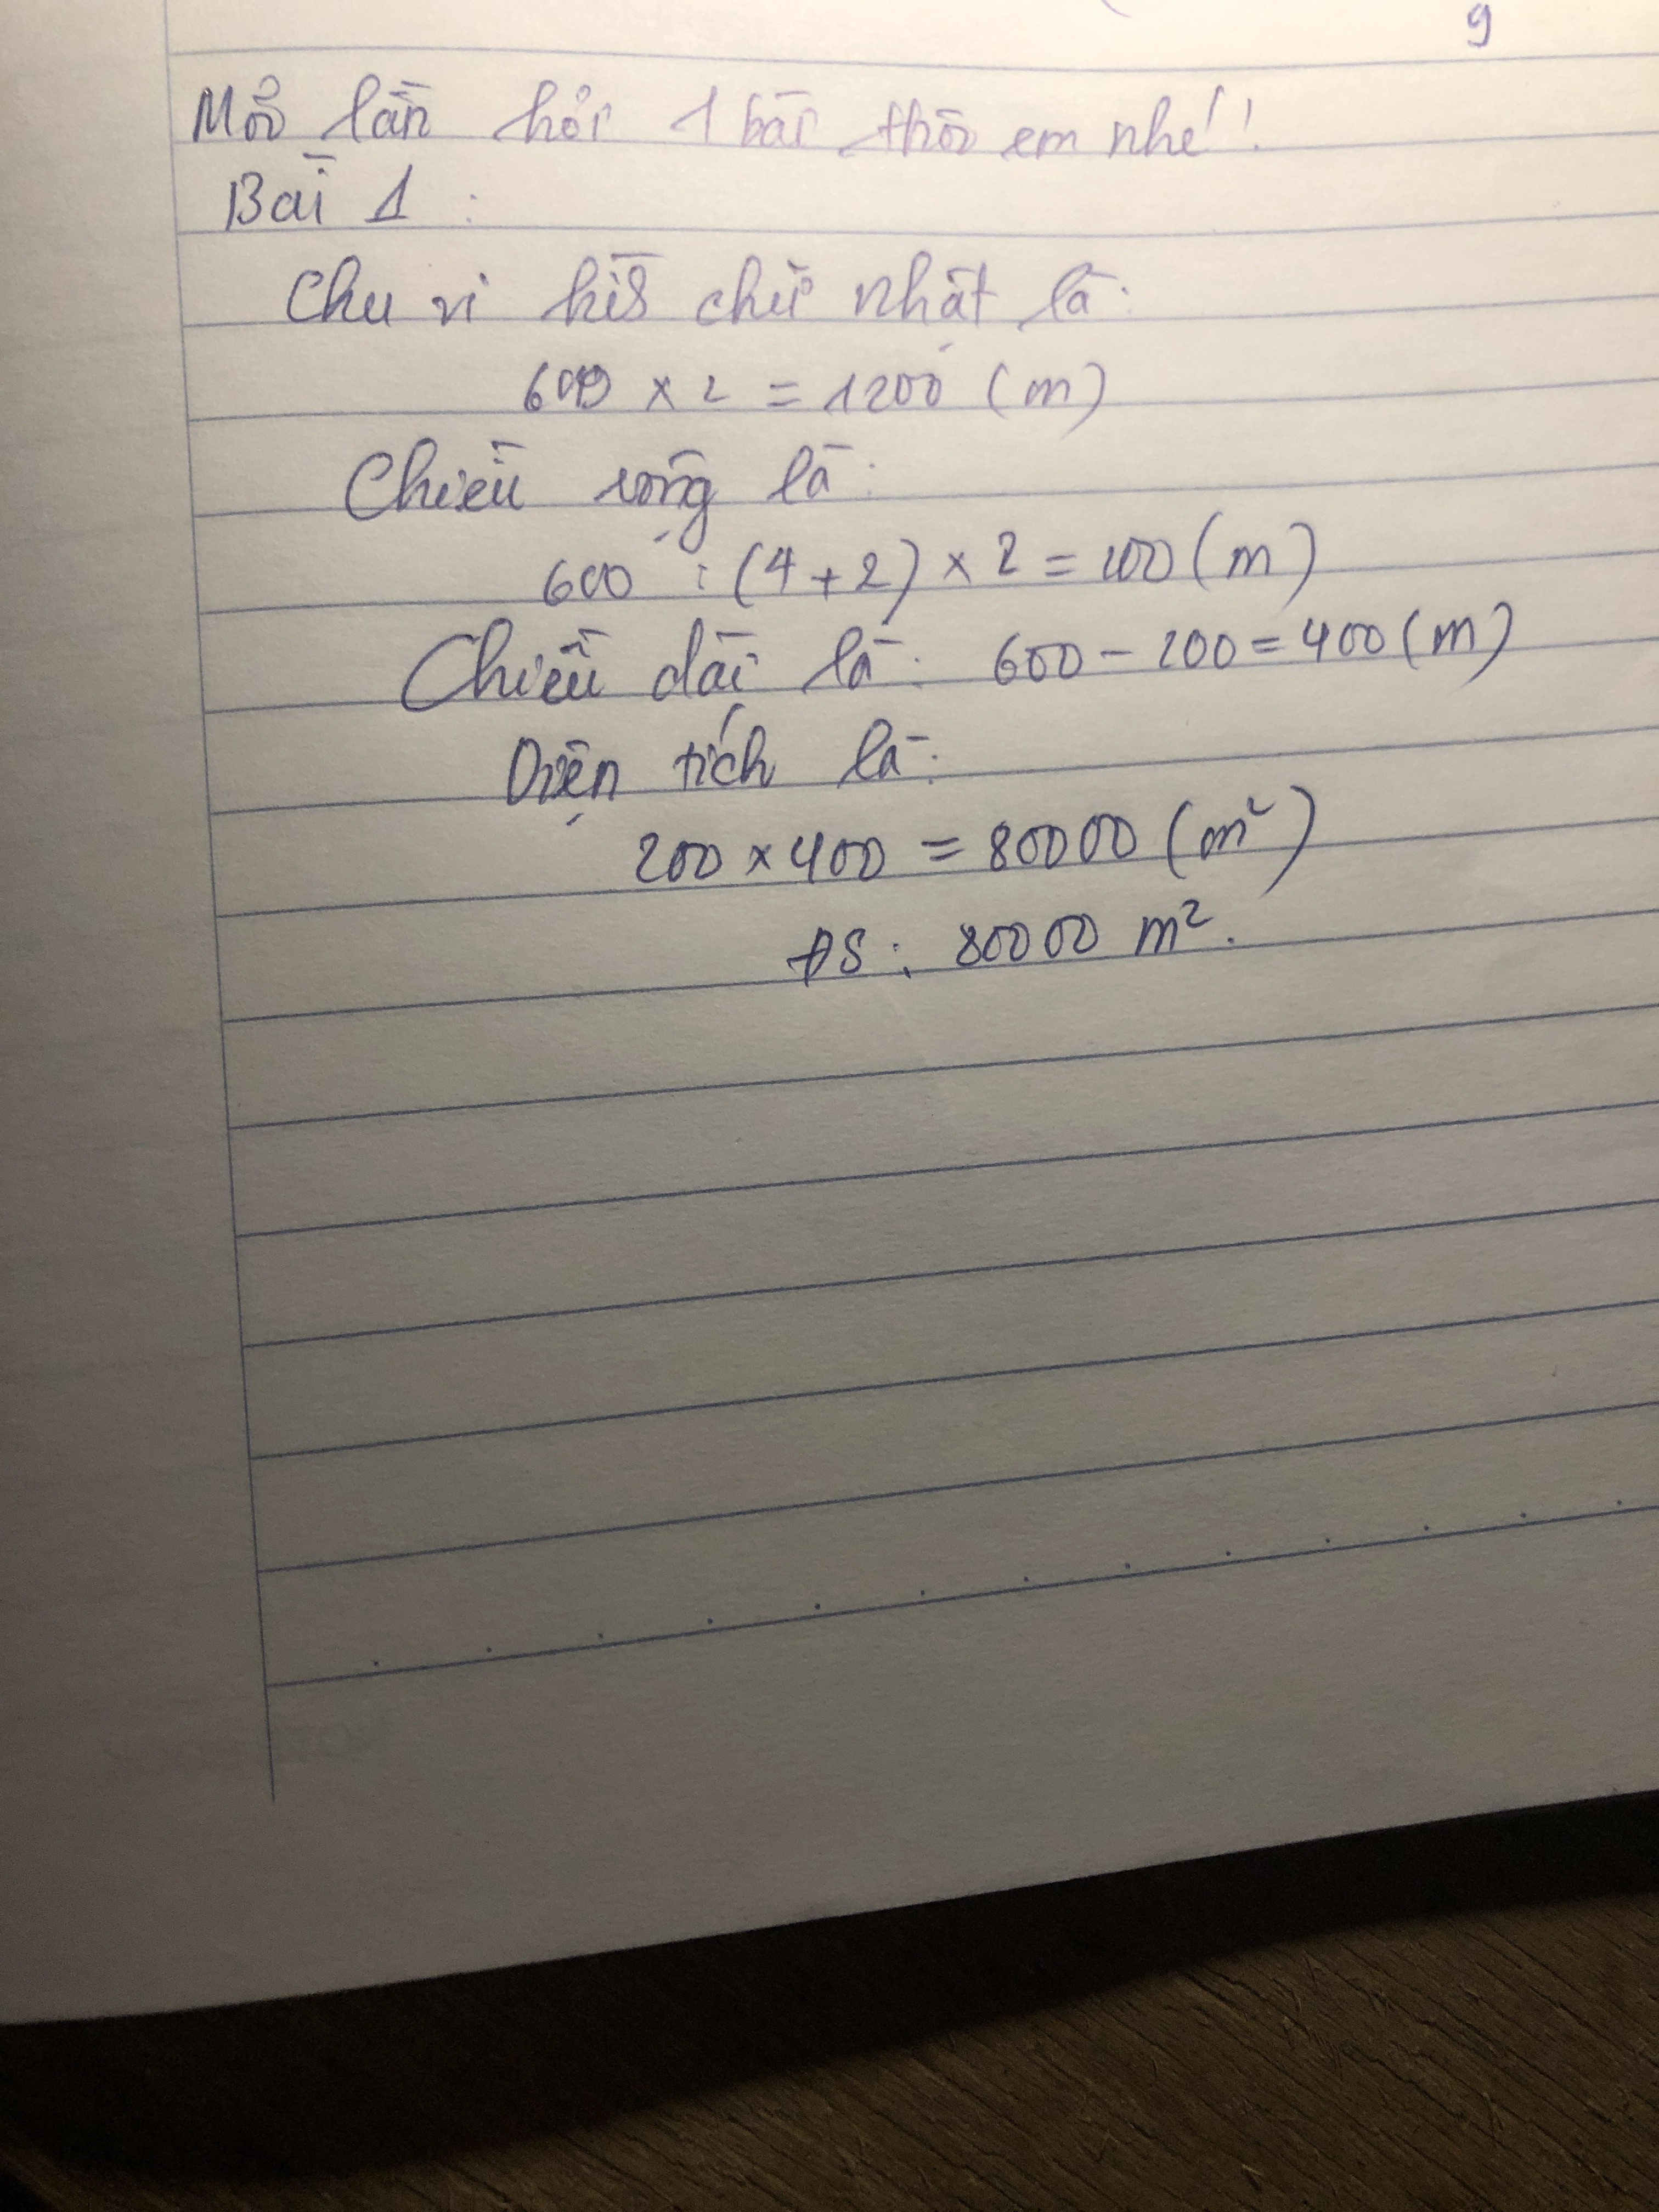 9
Mỗi lần hỏi 1 bài thôi em nhé!
Bài 1:
Chu vi hình chữ nhật là:
600 x 2 = 1200 (m)
Chiều rộng là:
600 : (4+2) x 2 = 200 (m)
Chiều dài là: 600 - 200 = 400 (m)
Diện tích là:
200 x 400 = 80000 (m²)
ĐS: 80000 m².